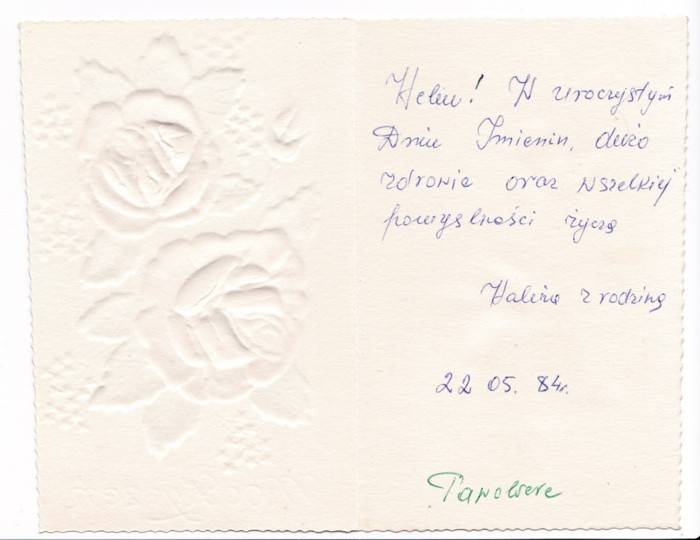 Helu! W uroczystym
Dniu Imienin, dużo
zdrowia oraz wszelkiej
pomyślności życzą
Halina z rodziną
22 05. 84r.